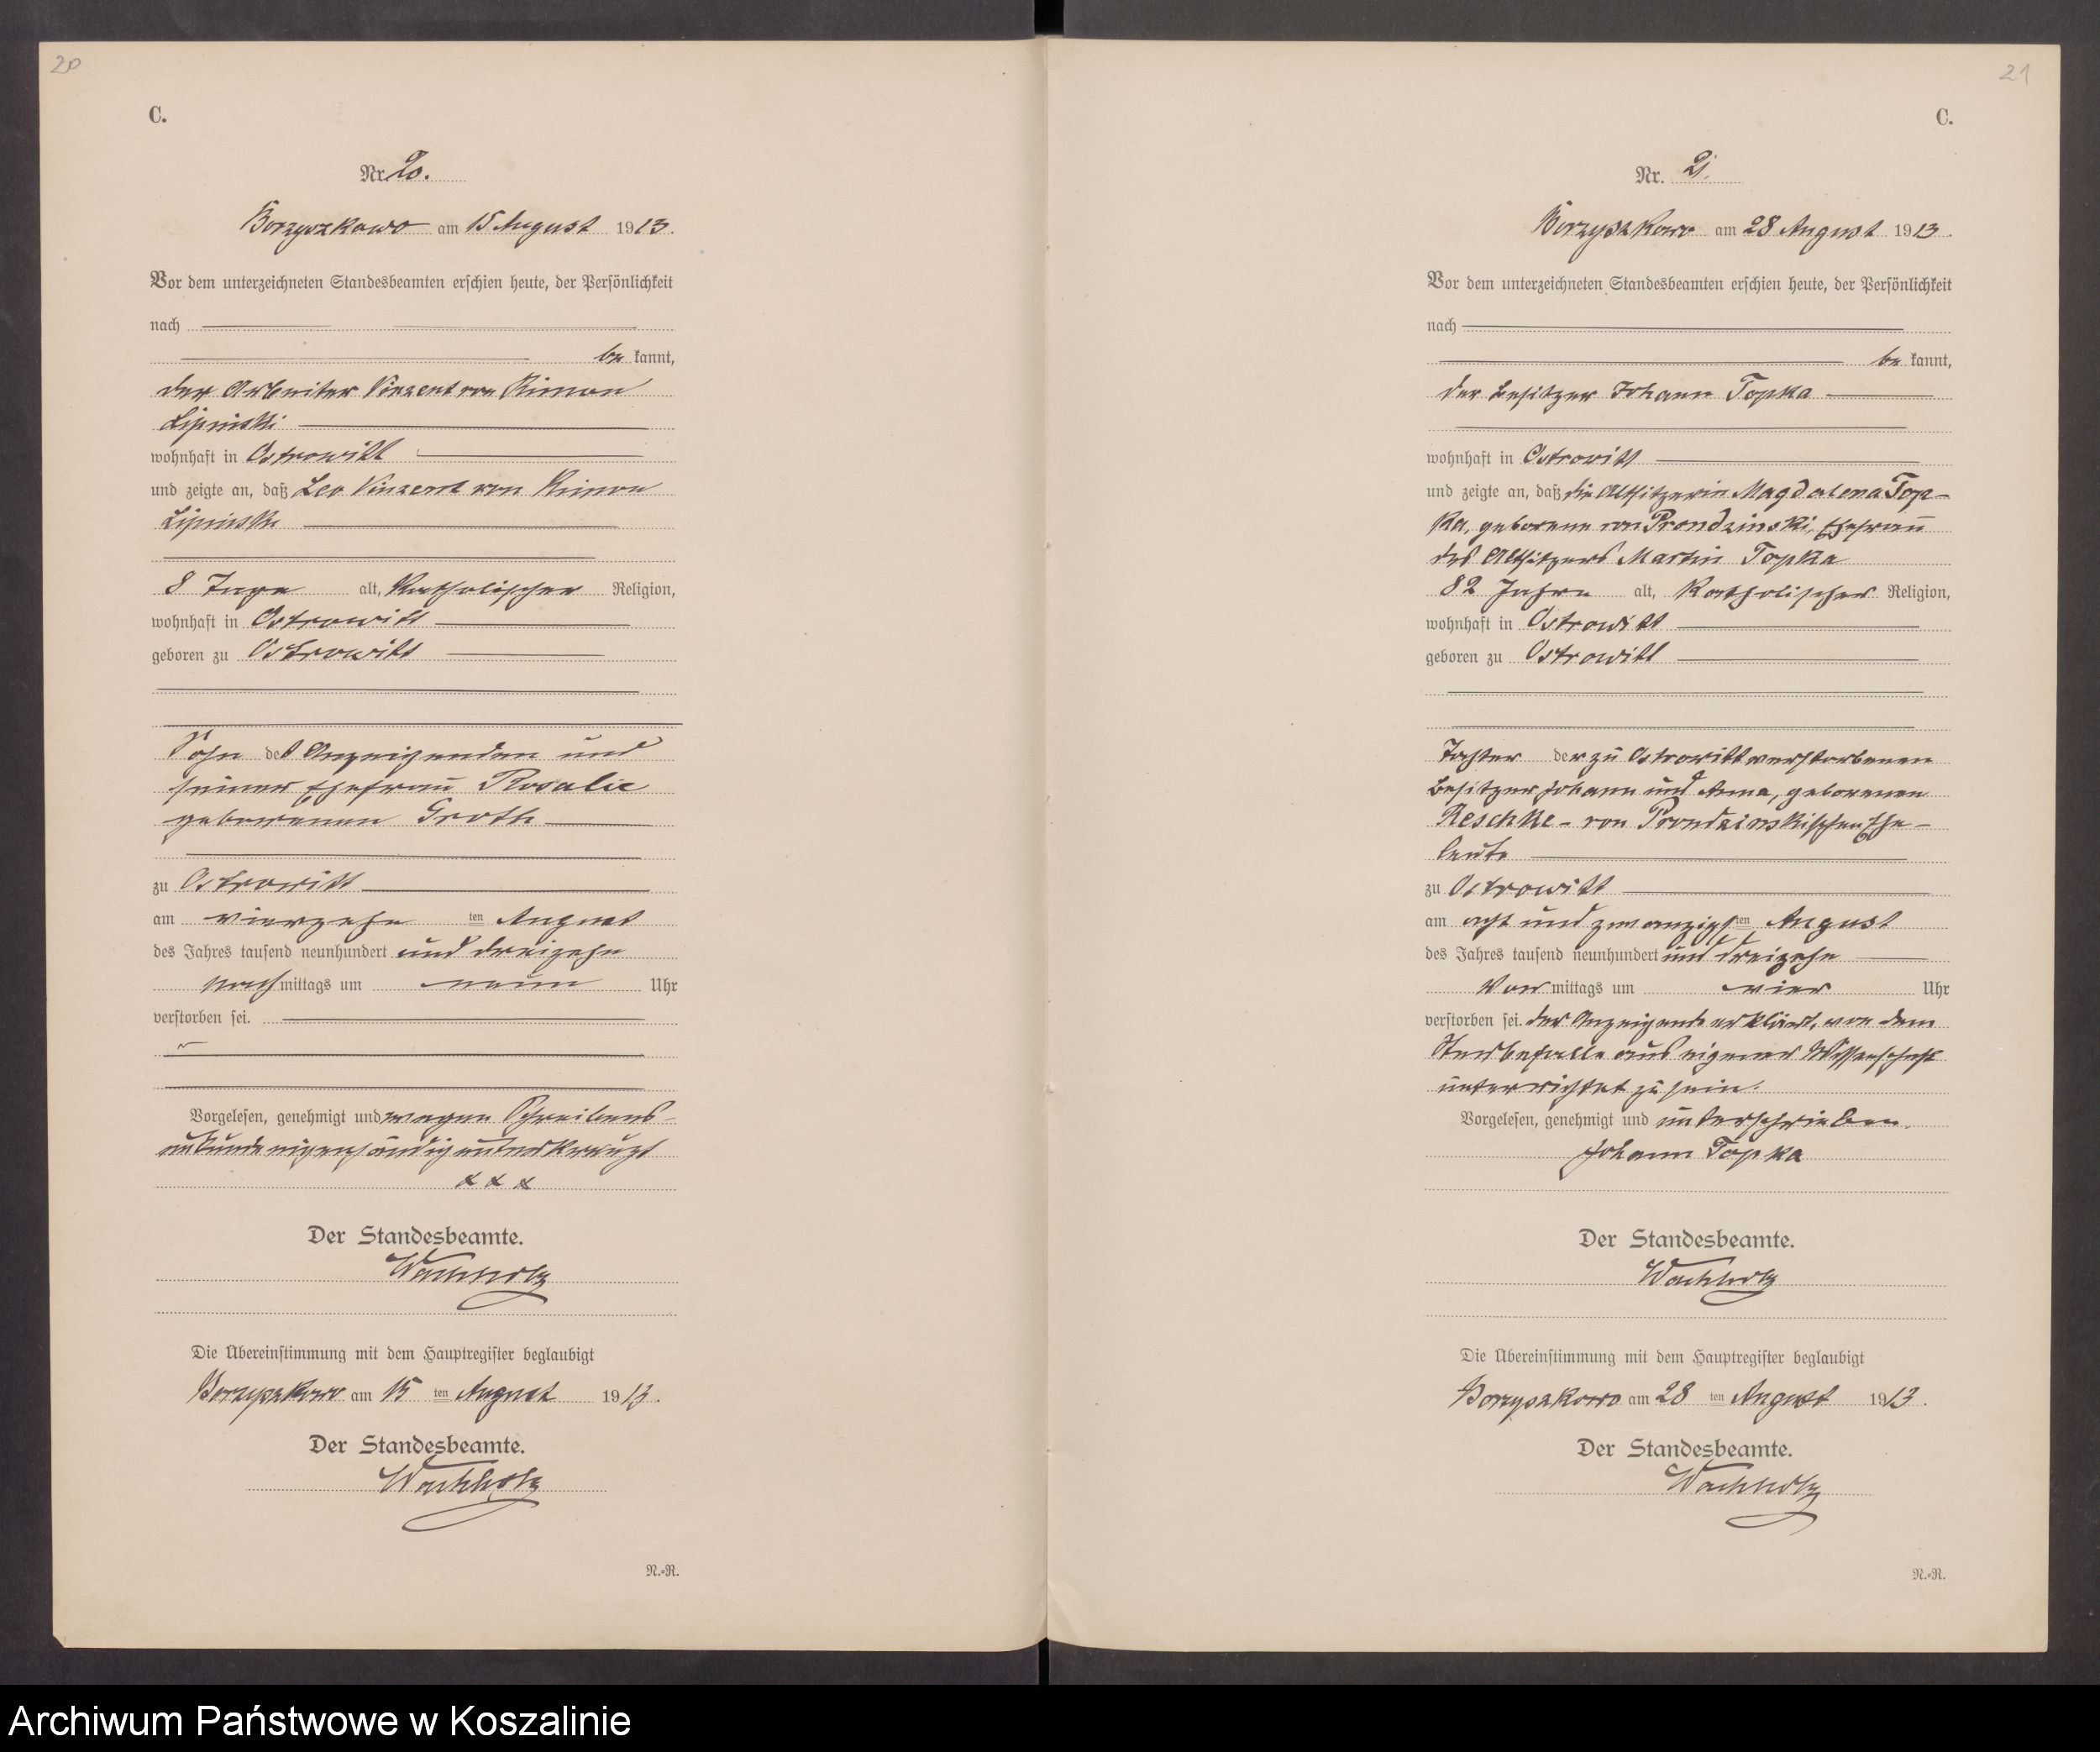 20
C.
Nr. 20.
Borzyszkowo am 15 August 1913.
Vor dem unterzeichneten Standesbeamten erschien heute, der Persönlichkeit
nach
be kannt,
der Arbeiter Vinzent von Kimon
Lipinski
wohnhaft in Ostrowitt
und zeigte an, daß Leo Vinzent von Kimon
Lipinski
8 Tage alt, katholischer Religion,
wohnhaft in Ostrowitt
geboren zu Ostrowitt
Sohn des Anzeigenden und
seiner Ehefrau Rosalie
geborenen Groth
zu Ostrowitt
am vierzehn ten August
des Jahres tausend neunhundert und dreizehn
nachmittags um neun Uhr
verstorben sei.
Vorgelesen, genehmigt und wegen Schreibens-
unkunde eigenhändig unterkreuzt
x x x
Der Standesbeamte.
Wachholz
Die Übereinstimmung mit dem Hauptregister beglaubigt
Borzyszkowo am 15 ten August 1913.
Der Standesbeamte.
Wachholz
N.-R.
21
C.
Nr. 21.
Borzyszkowo am 28 August 1913.
Vor dem unterzeichneten Standesbeamten erschien heute, der Persönlichkeit
nach
be kannt,
der Besitzer Johann Topka
wohnhaft in Ostrowitt
und zeigte an, daß die Altsitzerin Magdalena Top-
ka, geborene von Prondzinski, Ehefrau
des Altsitzers Martin Topka
82 Jahre alt, katholischer Religion,
wohnhaft in Ostrowitt
geboren zu Ostrowitt
Tochter der zu Ostrowitt verstorbenen
Besitzer Johann und Anna, geborenen
Reschke - von Prondzinskischen Ehe-
leute
zu Ostrowitt
am acht und zwanzigsten August
des Jahres tausend neunhundert und dreizehn
Vormittags um vier Uhr
verstorben sei. Der Anzeigende erklärt, von dem
Sterbefalle aus eigener Wissenschaft
unterrichtet zu sein.
Vorgelesen, genehmigt und unterschrieben.
Johann Topka
Der Standesbeamte.
Wachholz
Die Übereinstimmung mit dem Hauptregister beglaubigt
Borzyszkowo am 28 ten August 1913.
Der Standesbeamte.
Wachholz
N.-R.
Archiwum Państwowe w Koszalinie